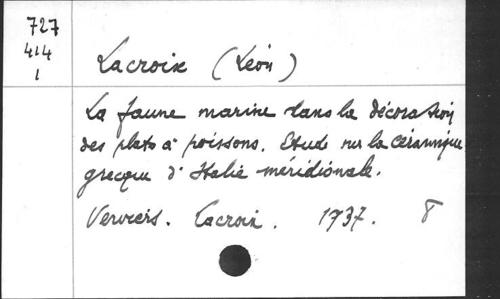 727
414
1
Lacroix (Léon)
La faune marine dans la décoration
des plats à poissons. Etude sur la céramique
grecque d'Italie méridionale.
Verviers. Lacroix. 1937. 8